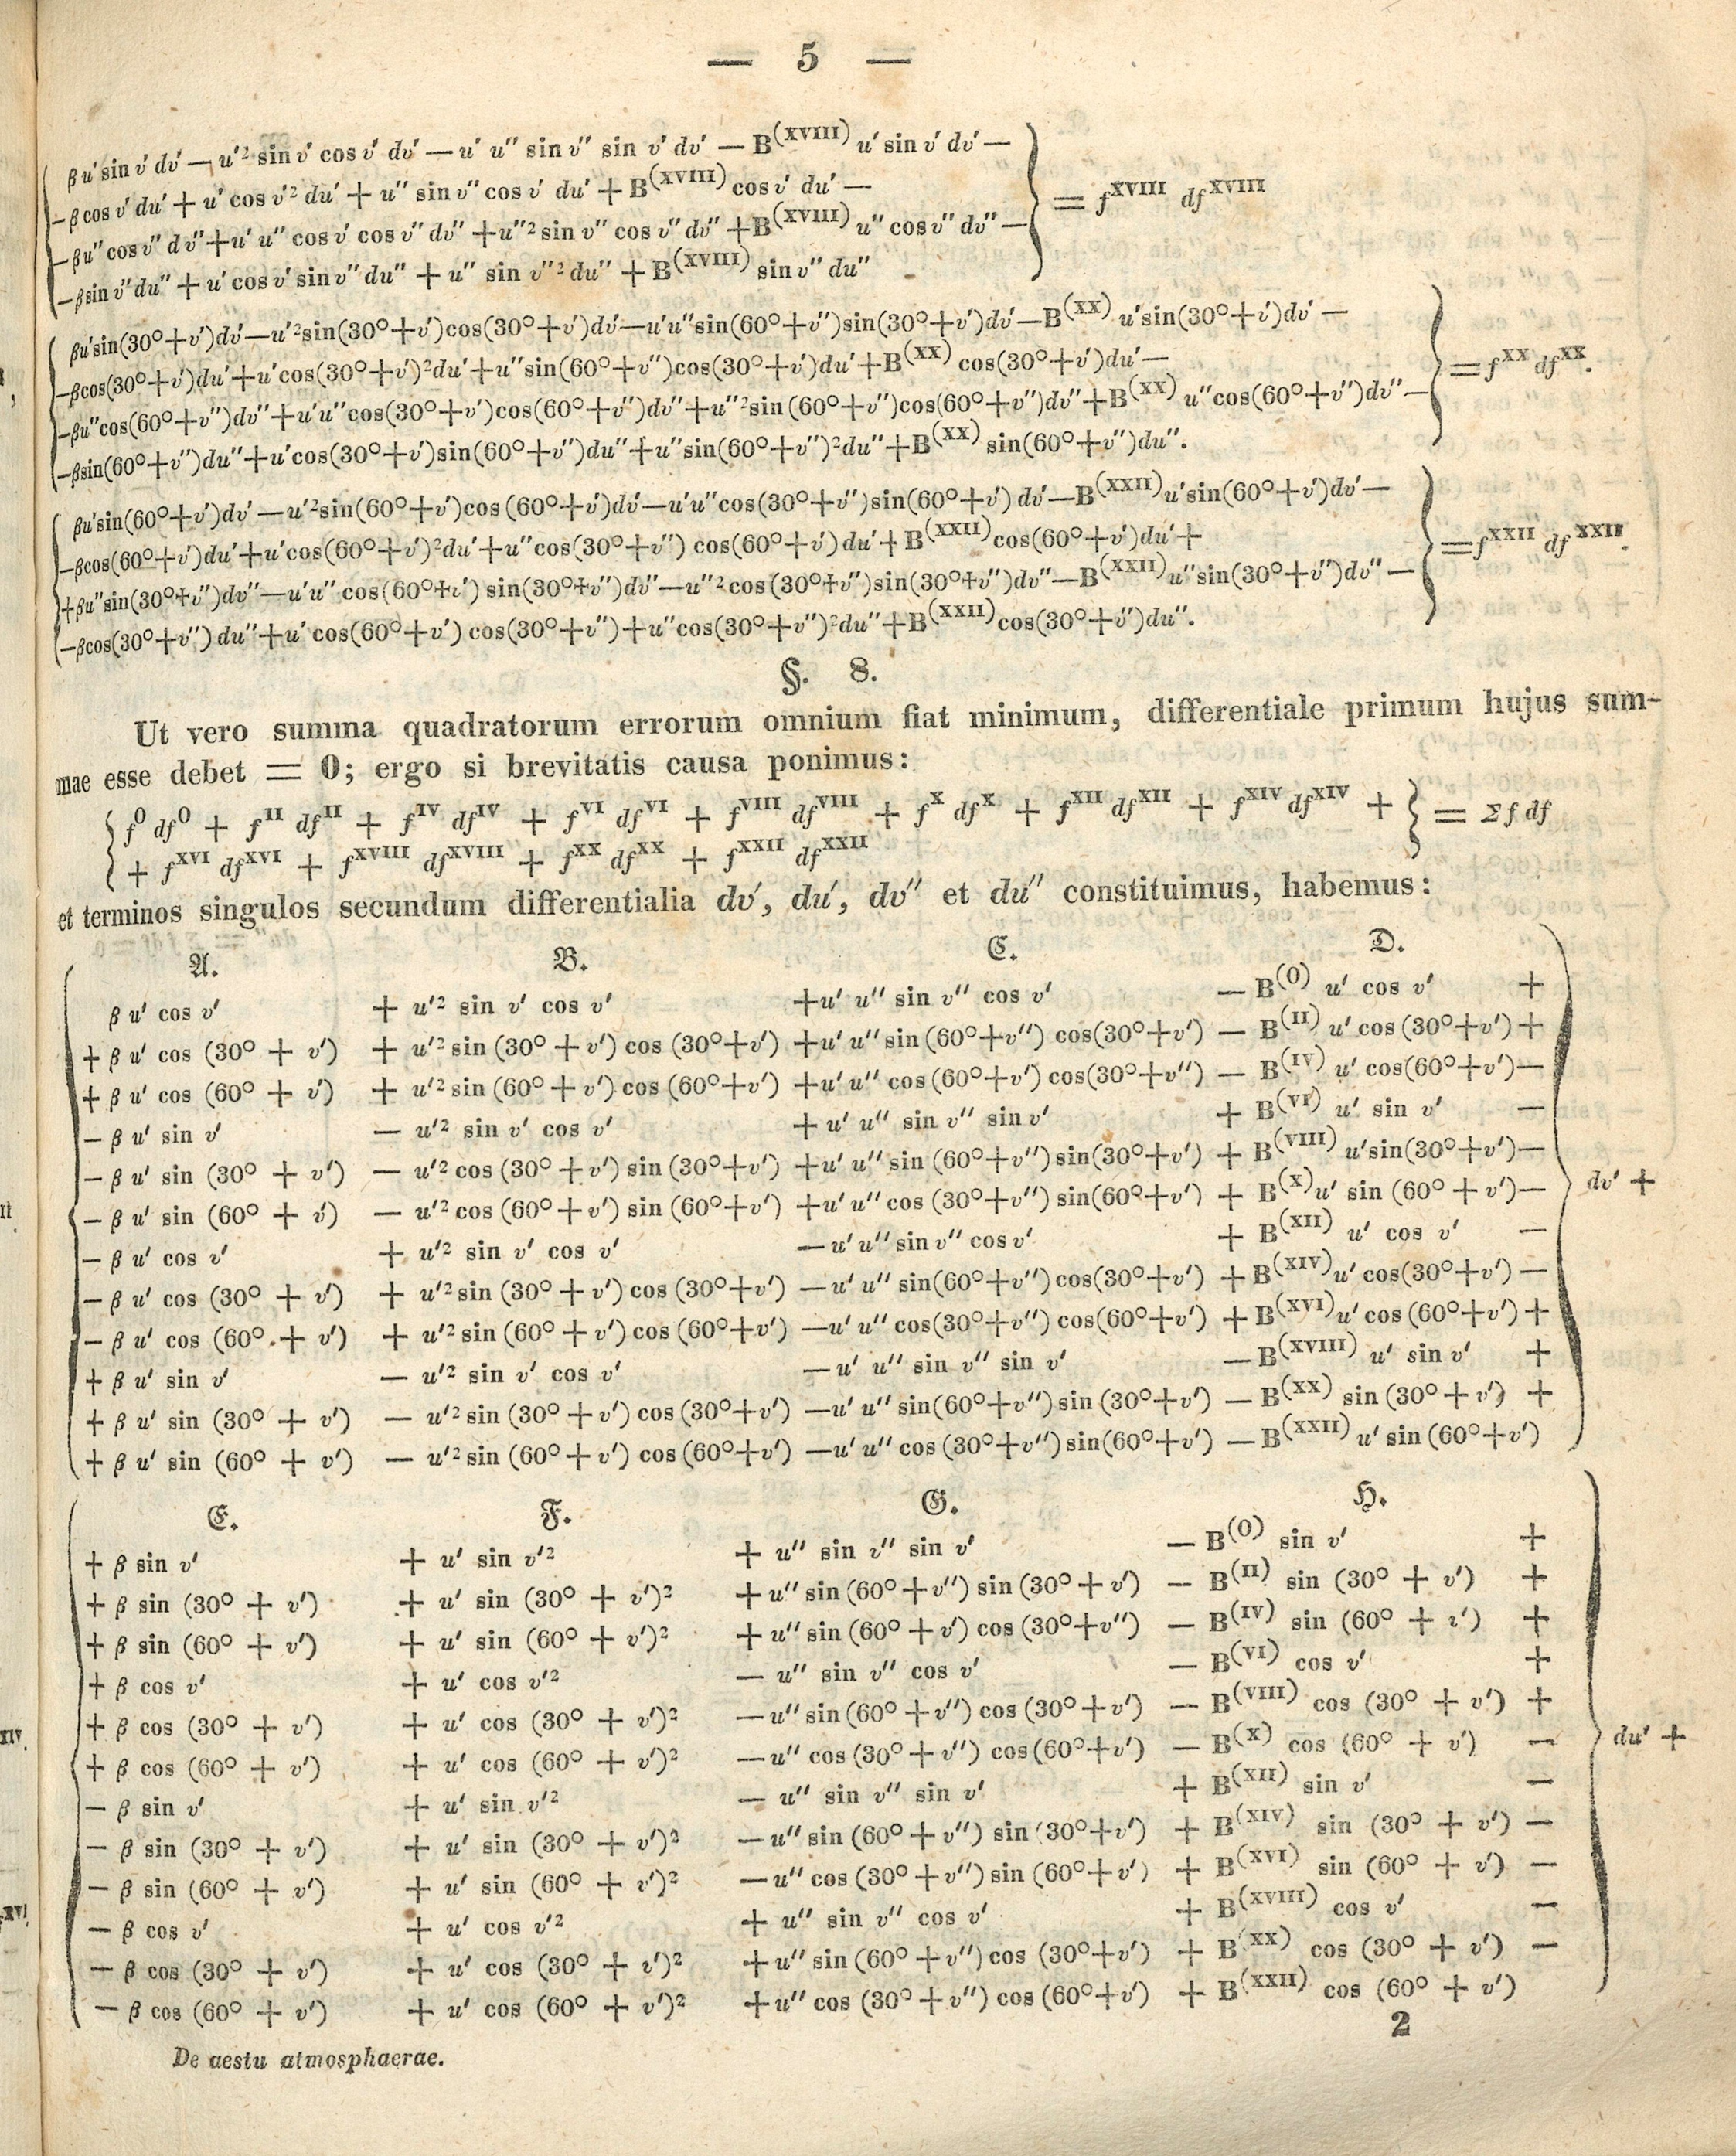 — 5 —
βu′sin v′ dv′ — u′² sin v′ cos v′ dv′ — u′ u″ sin v″ sin v′ dv′ — B(XVIII) u′ sin v′ dv′ —
—β cos v′ du′ + u′ cos v′² du′ + u″ sin v″ cos v′ du′ + B(XVIII) cos v′ du′ — } = f^XVIII df^XVIII
—βu″ cos v″ dv″ + u′ u″ cos v′ cos v″ dv″ + u″² sin v″ cos v″ dv″ + B(XVIII) u″ cos v″ dv″ —
—β sin v″ du″ + u′ cos v′ sin v″ du″ + u″ sin v″² du″ + B(XVIII) sin v″ du″
βu′sin(30°+v′)dv′—u′²sin(30°+v′)cos(30°+v′)dv′—u′u″sin(60°+v″)sin(30°+v′)dv′—B(XX) u′sin(30°+v′)dv′ —
—βcos(30°+v′)du′+u′cos(30°+v′)²du′+u″sin(60°+v″)cos(30°+v′)du′+B(XX) cos(30°+v′)du′— } = f^XX df^XX.
—βu″cos(60°+v″)dv″+u′u″cos(30°+v′)cos(60°+v″)dv″+u″²sin(60°+v″)cos(60°+v″)dv″+B(XX) u″cos(60°+v″)dv″—
—βsin(60°+v″)du″+u′cos(30°+v′)sin(60°+v″)du″+u″sin(60°+v″)²du″+B(XX) sin(60°+v″)du″.
βu′sin(60°+v′)dv′—u′²sin(60°+v′)cos(60°+v′)dv′—u′u″cos(30°+v″)sin(60°+v′) dv′—B(XXII)u′sin(60°+v′)dv′—
—βcos(60°+v′)du′+u′cos(60°+v′)²du′+u″cos(30°+v″) cos(60°+v′) du′+ B(XXII)cos(60°+v′)du′+ } = f^XXII df^XXII.
+βu″sin(30°+v″)dv″—u′u″ cos(60°+v′) sin(30°+v″)dv″—u″² cos(30°+v″)sin(30°+v″)dv″—B(XXII)u″sin(30°+v″)dv″ —
—βcos(30°+v″) du″+u′ cos(60°+v′) cos(30°+v″)+u″cos(30°+v″)²du″+B(XXII)cos(30°+v″)du″.
§. 8.
Ut vero summa quadratorum errorum omnium fiat minimum, differentiale primum hujus sum-
mae esse debet = 0; ergo si brevitatis causa ponimus:
{ f^0 df^0 + f^II df^II + f^IV df^IV + f^VI df^VI + f^VIII df^VIII + f^X df^X + f^XII df^XII + f^XIV df^XIV + } = Σ f df
+ f^XVI df^XVI + f^XVIII df^XVIII + f^XX df^XX + f^XXII df^XXII
et terminos singulos secundum differentialia dv′, du′, dv″ et du″ constituimus, habemus:
A. B. C. D.
β u′ cos v′ + u′² sin v′ cos v′ +u′ u″ sin v″ cos v′ — B(0) u′ cos v′ +
+ β u′ cos (30° + v′) + u′² sin (30° + v′) cos (30°+v′) +u′ u″ sin (60°+v″) cos(30°+v′) — B(II) u′ cos (30°+v′) +
+ β u′ cos (60° + v′) + u′² sin (60° + v′) cos (60°+v′) +u′ u″ cos (60°+v′) cos(30°+v″) — B(IV) u′ cos(60°+v′)—
— β u′ sin v′ — u′² sin v′ cos v′ + u′ u″ sin v″ sin v′ + B(VI) u′ sin v′ —
— β u′ sin (30° + v′) — u′² cos (30° + v′) sin (30°+v′) +u′ u″ sin (60°+v″) sin(30°+v′) + B(VIII) u′sin(30°+v′)—
— β u′ sin (60° + v′) — u′² cos (60° + v′) sin (60°+v′) +u′ u″ cos (30°+v″) sin(60°+v′) + B(X)u′ sin (60° + v′)— } dv′ +
— β u′ cos v′ + u′² sin v′ cos v′ — u′ u″ sin v″ cos v′ + B(XII) u′ cos v′ —
— β u′ cos (30° + v′) + u′² sin (30° + v′) cos (30°+v′) — u′ u″ sin(60°+v″) cos(30°+v′) + B(XIV)u′ cos(30°+v′) —
— β u′ cos (60° + v′) + u′² sin (60° + v′) cos (60°+v′) —u′ u″ cos(30°+v″) cos(60°+v′) + B(XVI)u′ cos (60°+v′) +
+ β u′ sin v′ — u′² sin v′ cos v′ — u′ u″ sin v″ sin v′ — B(XVIII) u′ sin v′ +
+ β u′ sin (30° + v′) — u′² sin (30° + v′) cos (30°+v′) —u′ u″ sin(60°+v″) sin (30°+v′) — B(XX) sin (30° + v′) +
+ β u′ sin (60° + v′) — u′² sin (60° + v′) cos (60°+v′) —u′ u″ cos (30°+v″) sin(60°+v′) — B(XXII) u′ sin (60°+v′)
E. F. G. H.
+ β sin v′ + u′ sin v′² + u″ sin v″ sin v′ — B(0) sin v′ +
+ β sin (30° + v′) + u′ sin (30° + v′)² + u″ sin (60° + v″) sin (30° + v′) — B(II) sin (30° + v′) +
+ β sin (60° + v′) + u′ sin (60° + v′)² + u″ sin (60° + v′) cos (30°+v″) — B(IV) sin (60° + v′) +
+ β cos v′ + u′ cos v′² — u″ sin v″ cos v′ — B(VI) cos v′ +
+ β cos (30° + v′) + u′ cos (30° + v′)² — u″ sin (60° + v″) cos (30° + v′) — B(VIII) cos (30° + v′) +
+ β cos (60° + v′) + u′ cos (60° + v′)² — u″ cos (30° + v″) cos (60°+v′) — B(X) cos (60° + v′) — } du′ +
— β sin v′ + u′ sin v′² — u″ sin v″ sin v′ + B(XII) sin v′ —
— β sin (30° + v′) + u′ sin (30° + v′)² — u″ sin (60° + v″) sin (30°+v′) + B(XIV) sin (30° + v′) —
— β sin (60° + v′) + u′ sin (60° + v′)² — u″ cos (30° + v″) sin (60°+v′) + B(XVI) sin (60° + v′) —
— β cos v′ + u′ cos v′² + u″ sin v″ cos v′ + B(XVIII) cos v′ —
— β cos (30° + v′) + u′ cos (30° + v′)² + u″ sin (60° + v″) cos (30°+v′) + B(XX) cos (30° + v′) —
— β cos (60° + v′) + u′ cos (60° + v′)² + u″ cos (30° + v″) cos (60°+v′) + B(XXII) cos (60° + v′)
2
De aestu atmosphaerae.